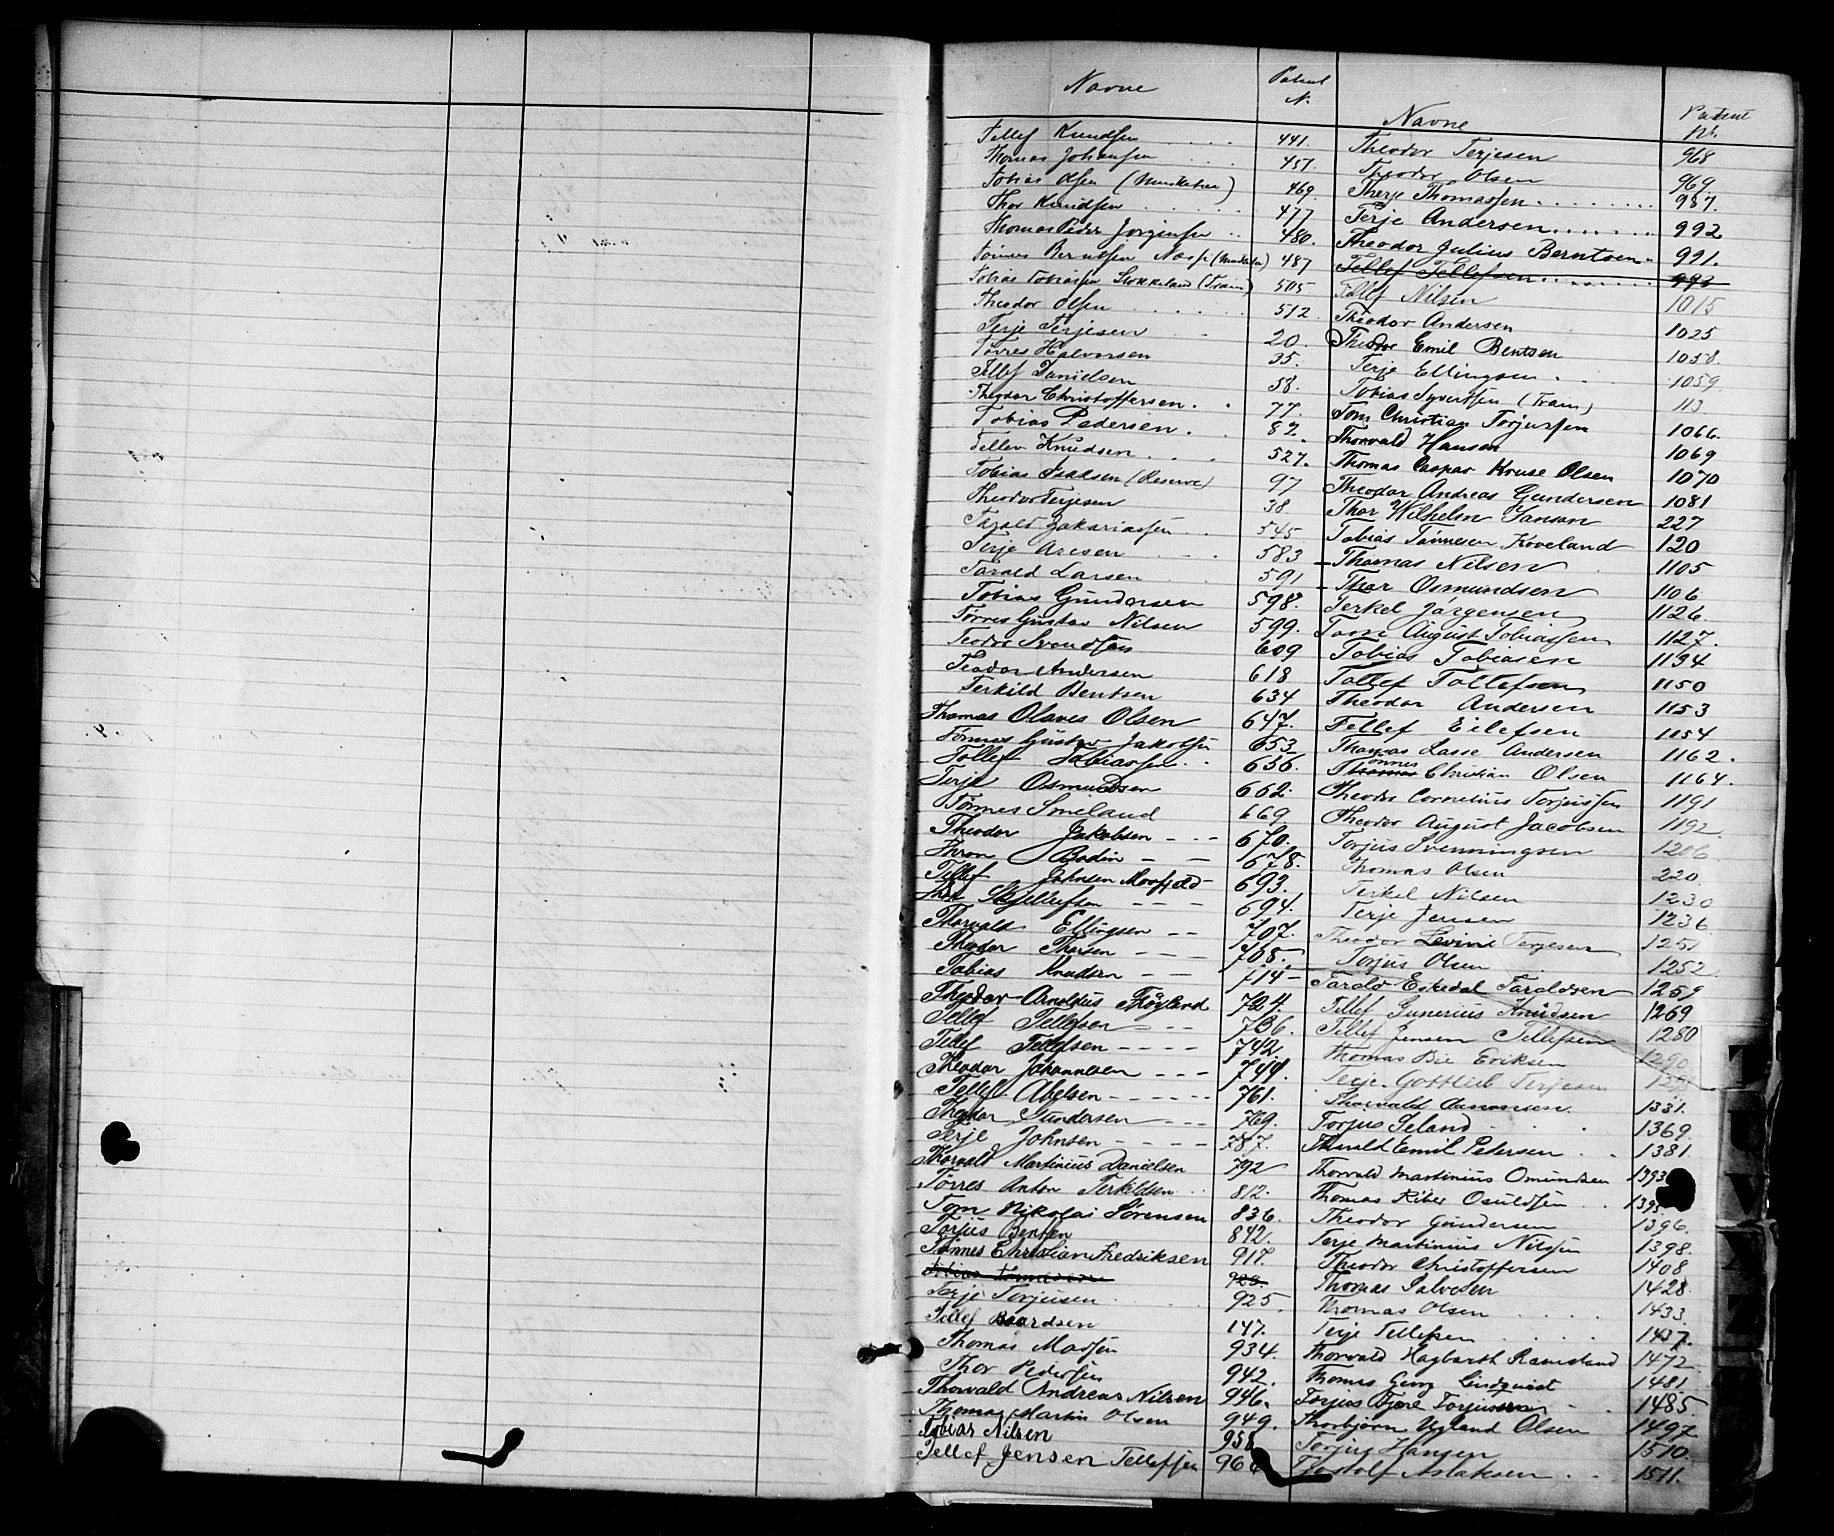 Navne Patent N.
Tellef Knudsen 441.
Thomas Johansen 457.
Tobias Olsen (Munkebrev) 469.
Thor Knudsen 477
Thomas Peder Jörginsen 480.
Tönnes Berntsen 487
Tobias Tobiassen Stokkeland (Train) 505
Theodor Olsen 512.
Terje Terjesen 20.
Tövres Halvorsen 35.
Tellef Danielsen 58.
Theodor Christoffersen. 77.
Tobias Pedersen. 82.
Tellev Knudsen 527.
Tobias Isaksen (Reserve) 97
Theodor Terjesen 38
Tarald Zakariassen 545.
Terje Aresen 583
Tarald Larsen 591
Tobias Gundersen 598.
Törres Gustav Nilsen 599.
Teodor Svendsen 609
Teodor Andersen 618
Terkild Bentsen 634
Thomas Olaves Olsen 647.
Tönnes Gustav Jakobsen 653
Tollef Tobiassen 656.
Terje Osmundsen 662.
Tönnes Smeland 669
Theodor Jakobsen 670.
Thron Bodin 678.
Tellef Johnsen Mosfjeld 693.
694.
Thorvald Ellingsen 707.
Theodor Thorsen 708.
Tobias Knudsen 714
Theodor Arnoldus Fröyland 724.
Tellef Tellefsen 736.
Tellef Tellefsen 742.
Theodor Johannesen 744.
Tellef Abelsen 761.
Theodor Gundersen 769.
Terje Johnsen 787.
Thorvald Martinius Danielsen 792
Törres Anton Terkildsen 812.
Tom Nikolai Sörensen 836.
Torjus Bentsen 842.
Tönnes Christian Fredriksen 917.
Tobias Tönnesen 923.
Terje Torjusen 925.
Tellef Baardsen 147.
Thomas Madsen 934.
Thor Pedersen 942.
Thorvald Andreas Nilsen 946.
Thomas Martin Olsen 949.
Tobias Nilsen 958
Tellef Jensen Tellefsen 966
Navne Patent Nr.
Theodor Terjesen 968
Theodor Olsen 969
Therje Thomassen 987.
Terje Andersen 992
Theodor Julius Berntsen 991.
Tellef Tellefsen 993
Tellef Nilsen 1015
Theodor Andersen 1025
Theodor Emil Bentsen 1058.
Terje Ellingsen. 1059
Tobias Syvertsen (Train) 113
Tom Christian Torjussen 1066.
Thorvald Hansen 1069
Thomas Caspar Kruse Olsen 1070
Theodor Andreas Gundersen 1081
Thor Wilhelm Janson 227
Tobias Tönnesen Koveland 120
Thomas Nilsen 1105
Thor Osmundsen 1106
Terkel Jörgensen 1126.
Tom August Tobiassen 1127.
Tobias Tobiasen 1134
Tollef Tollefsen 1150
Theodor Andersen 1153
Tellef Eilefsen 1154
Thomas Lasse Andersen 1162.
Tönnes Christian Olsen 1164.
Theodor Cornelius Torjussen 1191
Theodor August Jacobsen 1192.
Torjus Svenningsen 1206
Thomas Olsen 220.
Terkel Nilsen 1230
Terje Jensen 1236.
Theodor Levine Terjesen 1251
Torjus Olsen 1252
Tarald Eskedal Taraldsen 1259
Tellef Gunerius Knudsen 1269
Tellef Jensen Tellefsen 1280
Thomas Bie Eriksen 1290
Terje Gottlieb Terjesen
Thorvald Aanonsen. 1331.
Torjus Igland 1369.
Tharald Emil Petersen 1381
Thorvald Martinius Omundsen 1393
Thomas Riber Osuldsen 1395
Theodor Gundersen 1396.
Terje Martinius Nilssen 1398.
Theodor Christoffersen 1408
Thomas Salvesen 1428.
Thomas Olsen 1433.
Terje Tellefsen 1437.
Thorvald Hagbarth Ramsland 1472
Thomas Georg Lindqvist 1481
Torjus Fjære Torjussen 1485
Thorbjörn Ugland Olsen 1497
Torjus Hansen 1510.
Torstolf Aslaksen 1511.
T
U
V
X
Z